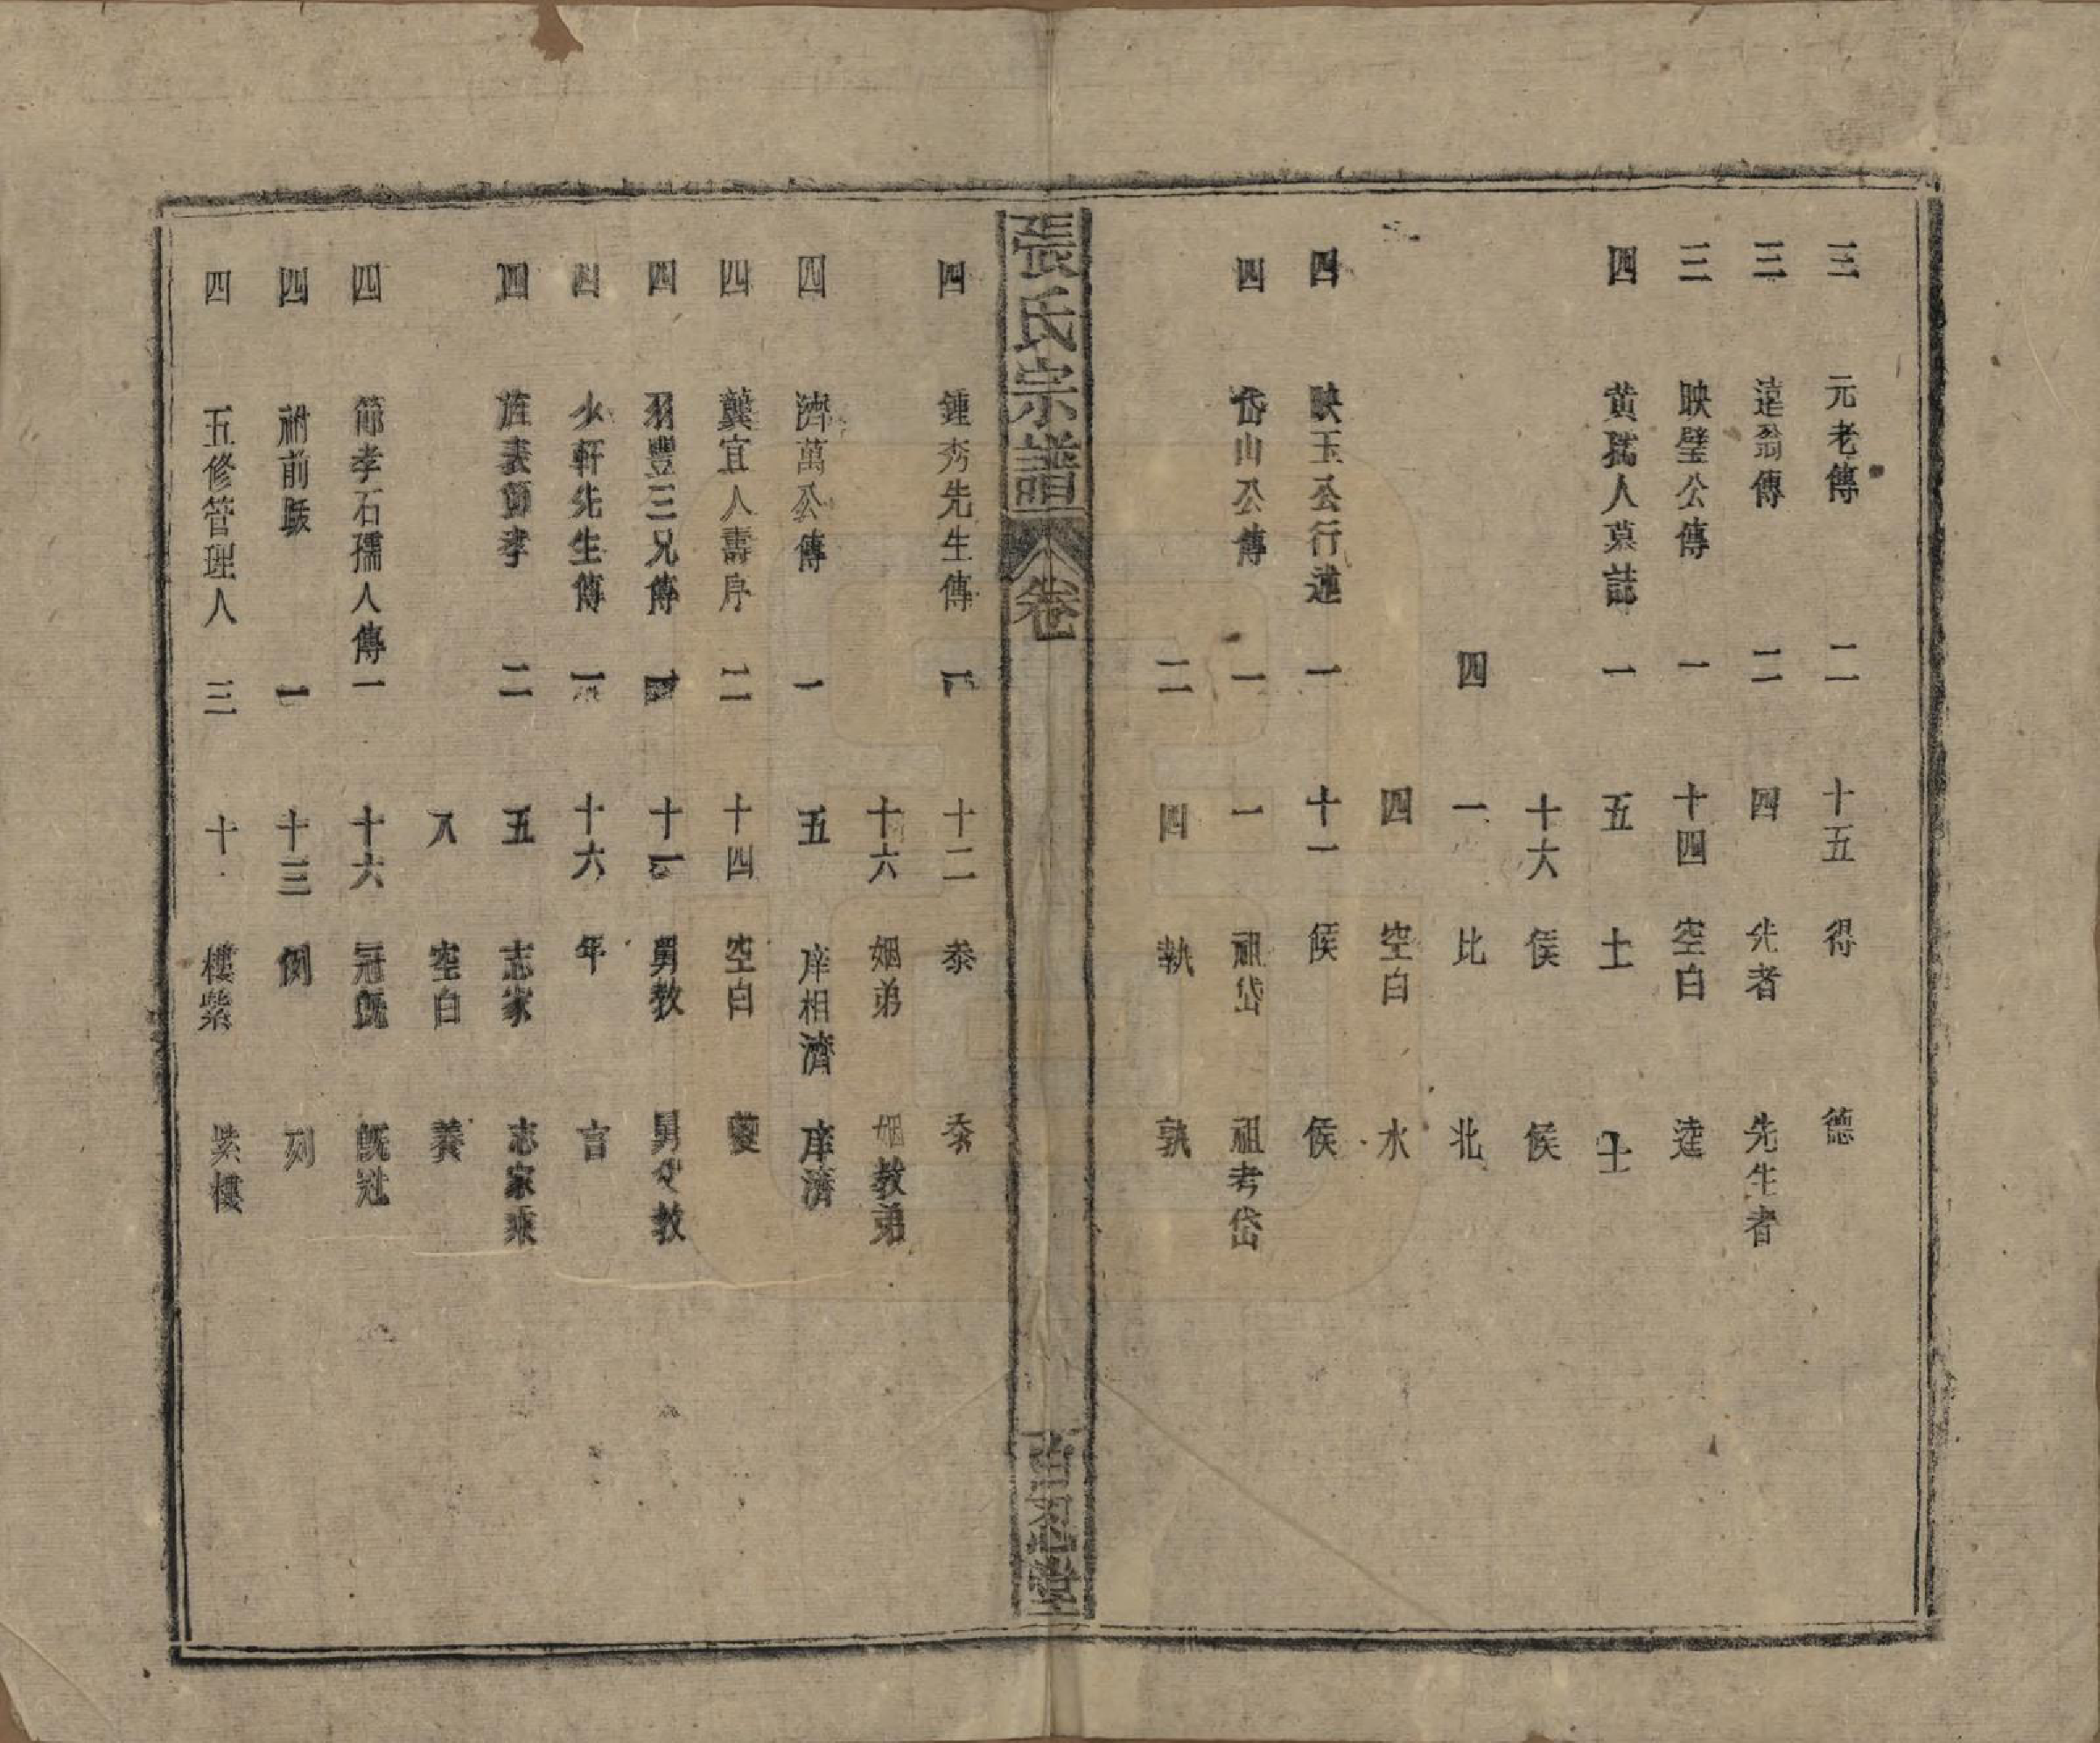 三 元老傳 二 十五 得 德
三 達翁傳 二 四 先者 先生者
三 映璧公傳 一 十四 空白 達
四 黄孺人墓誌 一 五 土 士
十六 侯 候
四 一 比 北
四 空白 水
四 映玉公行述 一 十一 候 侯
四 岱山公傳 一 一 祖岱 祖考岱
二 四 執 孰
張氏宗譜 卷 百忍堂
四 鍾秀先生傳 十二 泰 黍
十六 姻弟 姻教弟
四 濟萬公傳 一 五 庠相濟 庠濟
四 龔宜人壽序 二 十四 空白 夔
四 羽豐三兄傳 十 舅教 舅父教
四 少軒先生傳 一 十六 年 言
四 旌表節孝 二 五 志家 志家乘
八 空白 養
四 節孝石孺人傳 一 十六 冠既 既冠
四 祔前賬 一 十三 例 列
四 五修管理人 三 十 樓紫 紫樓